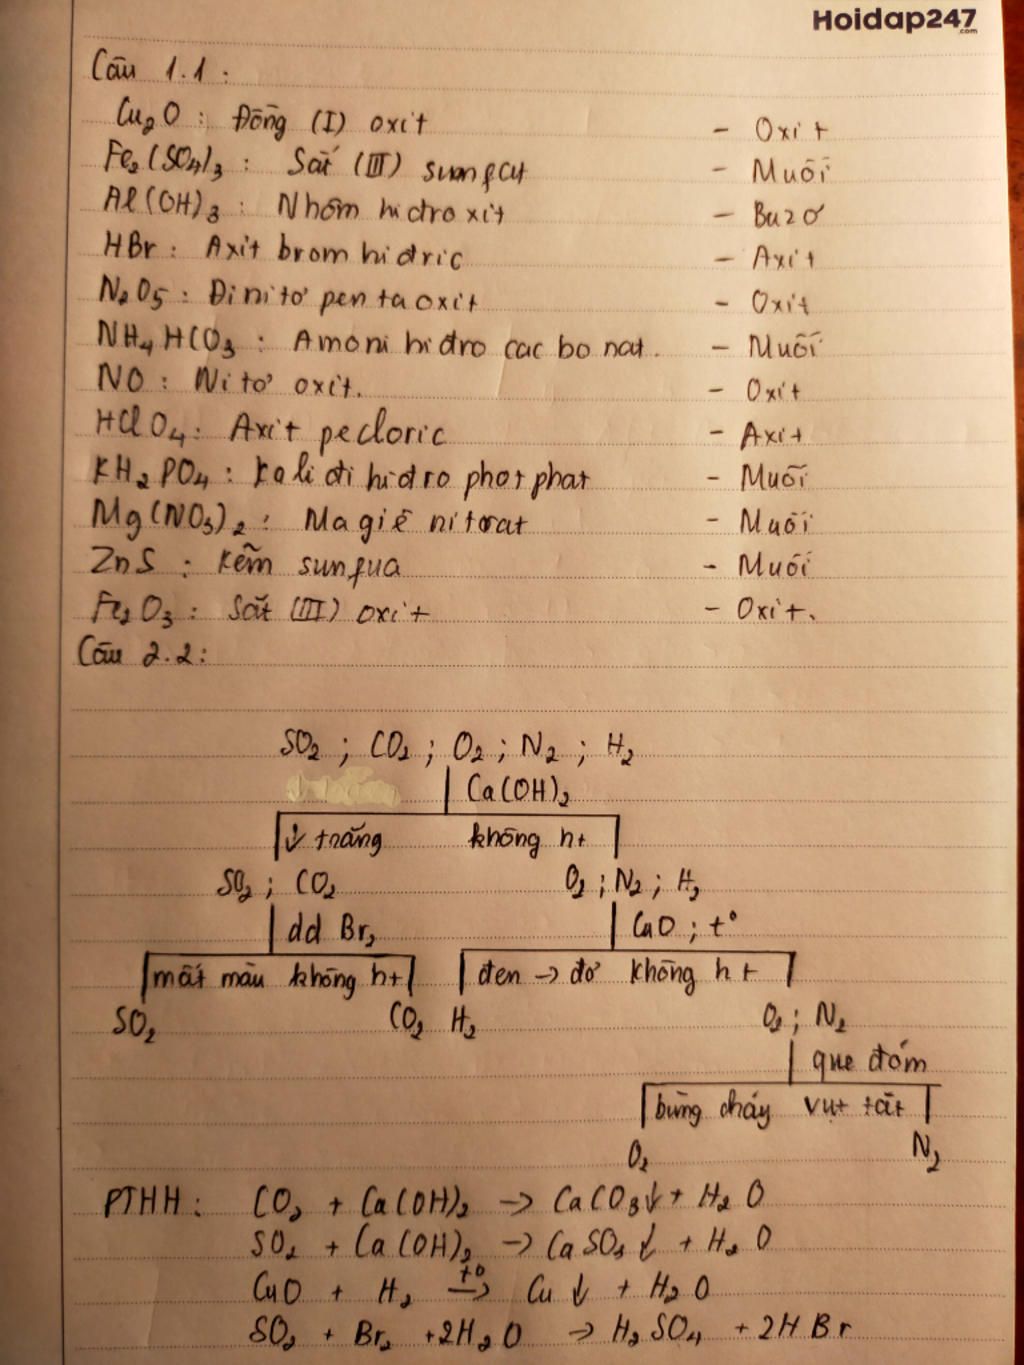 Hoidap247
.com
Câu 1.1:
Cu₂O: Đồng (I) oxit - Oxit
Fe₂(SO₄)₃: Sắt (III) sunfat - Muối
Al(OH)₃: Nhôm hidroxit - Bazơ
HBr: Axit bromhiđric - Axit
N₂O₅: Đinitơ pentaoxit - Oxit
NH₄HCO₃: Amoni hiđro cacbonat. - Muối
NO: Nitơ oxit. - Oxit
HClO₄: Axit pecloric - Axit
KH₂PO₄: Kali đihiđro photphat - Muối
Mg(NO₃)₂: Magiê nitorat - Muối
ZnS: Kẽm sunfua - Muối
Fe₂O₃: Sắt (III) oxit - Oxit.
Câu 2.2:
SO₂; CO₂; O₂; N₂; H₂
Ca(OH)₂
↓ trắng không ht
SO₂; CO₂ O₂; N₂; H₂
dd Br₂ CuO; t°
mất màu không ht đen → đỏ không ht
SO₂ CO₂ H₂ O₂; N₂
que đóm
bùng cháy vụt tắt
O₂ N₂
PTHH: CO₂ + Ca(OH)₂ → CaCO₃↓ + H₂O
SO₂ + Ca(OH)₂ → CaSO₃↓ + H₂O
CuO + H₂ t°→ Cu↓ + H₂O
SO₂ + Br₂ + 2H₂O → H₂SO₄ + 2HBr